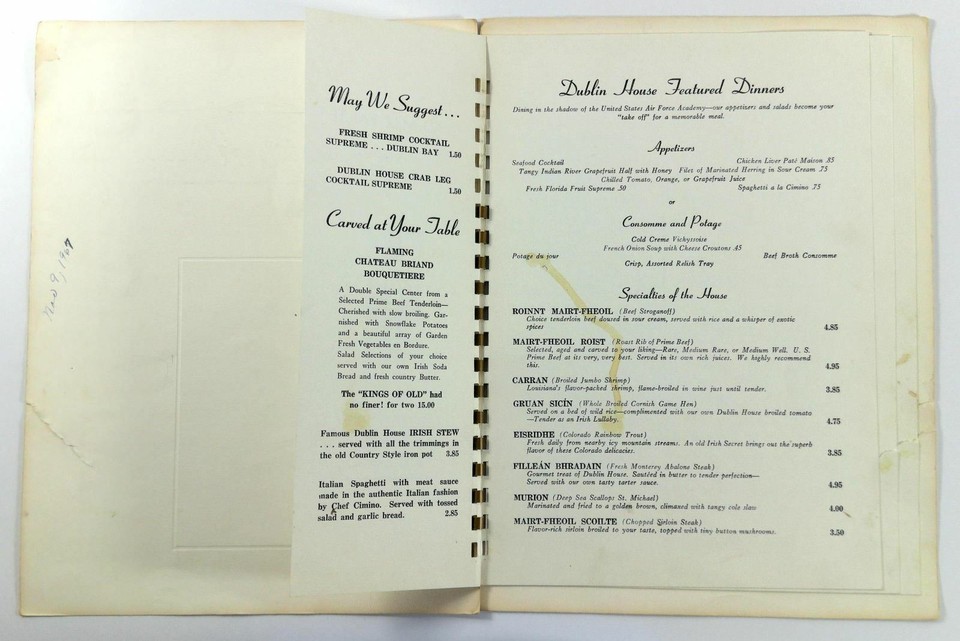 May We Suggest...
FRESH SHRIMP COCKTAIL
SUPREME . . . DUBLIN BAY 1.50
DUBLIN HOUSE CRAB LEG
COCKTAIL SUPREME 1.50
Carved at Your Table
FLAMING
CHATEAU BRIAND
BOUQUETIERE
A Double Special Center from a
Selected Prime Beef Tenderloin—
Cherished with slow broiling. Gar-
nished with Snowflake Potatoes
and a beautiful array of Garden
Fresh Vegetables en Bordure.
Salad Selections of your choice
served with our own Irish Soda
Bread and fresh country Butter.
The "KINGS OF OLD" had
no finer! for two 15.00
Famous Dublin House IRISH STEW
. . . served with all the trimmings in
the old Country Style iron pot 3.85
Italian Spaghetti with meat sauce
made in the authentic Italian fashion
by Chef Cimino. Served with tossed
salad and garlic bread. 2.85
Dublin House Featured Dinners
Dining in the shadow of the United States Air Force Academy—our appetizers and salads become your
"take off" for a memorable meal.
Appetizers
Seafood Cocktail Chicken Liver Paté Maison .85
Tangy Indian River Grapefruit Half with Honey Filet of Marinated Herring in Sour Cream .75
Chilled Tomato, Orange, or Grapefruit Juice
Fresh Florida Fruit Supreme .50 Spaghetti a la Cimino .75
or
Consomme and Potage
Cold Creme Vichyssoise
French Onion Soup with Cheese Croutons .45
Potage du jour Beef Broth Consomme
Crisp, Assorted Relish Tray
Specialties of the House
ROINNT MAIRT-FHEOIL (Beef Stroganoff)
Choice tenderloin beef doused in sour cream, served with rice and a whisper of exotic
spices 4.85
MAIRT-FHEOIL ROIST (Roast Rib of Prime Beef)
Selected, aged and carved to your liking—Rare, Medium Rare, or Medium Well. U. S.
Prime Beef at its very, very best. Served in its own rich juices. We highly recommend
this. 4.95
CARRAN (Broiled Jumbo Shrimp)
Louisiana's flavor-packed shrimp, flame-broiled in wine just until tender. 3.85
GRUAN SICÍN (Whole Broiled Cornish Game Hen)
Served on a bed of wild rice—complimented with our own Dublin House broiled tomato
—Tender as an Irish Lullaby. 4.75
EISRIDHE (Colorado Rainbow Trout)
Fresh daily from nearby icy mountain streams. An old Irish Secret brings out the superb
flavor of these Colorado delicacies. 3.85
FILLEÁN BHRADAIN (Fresh Monterey Abalone Steak)
Gourmet treat of Dublin House. Sautéed in butter to tender perfection—
Served with our own tasty tarter sauce. 4.95
MURION (Deep Sea Scallops St. Michael)
Marinated and fried to a golden brown, climaxed with tangy cole slaw 4.00
MAIRT-FHEOIL SCOILTE (Chopped Sirloin Steak)
Flavor-rich sirloin broiled to your taste, topped with tiny button mushrooms. 3.50